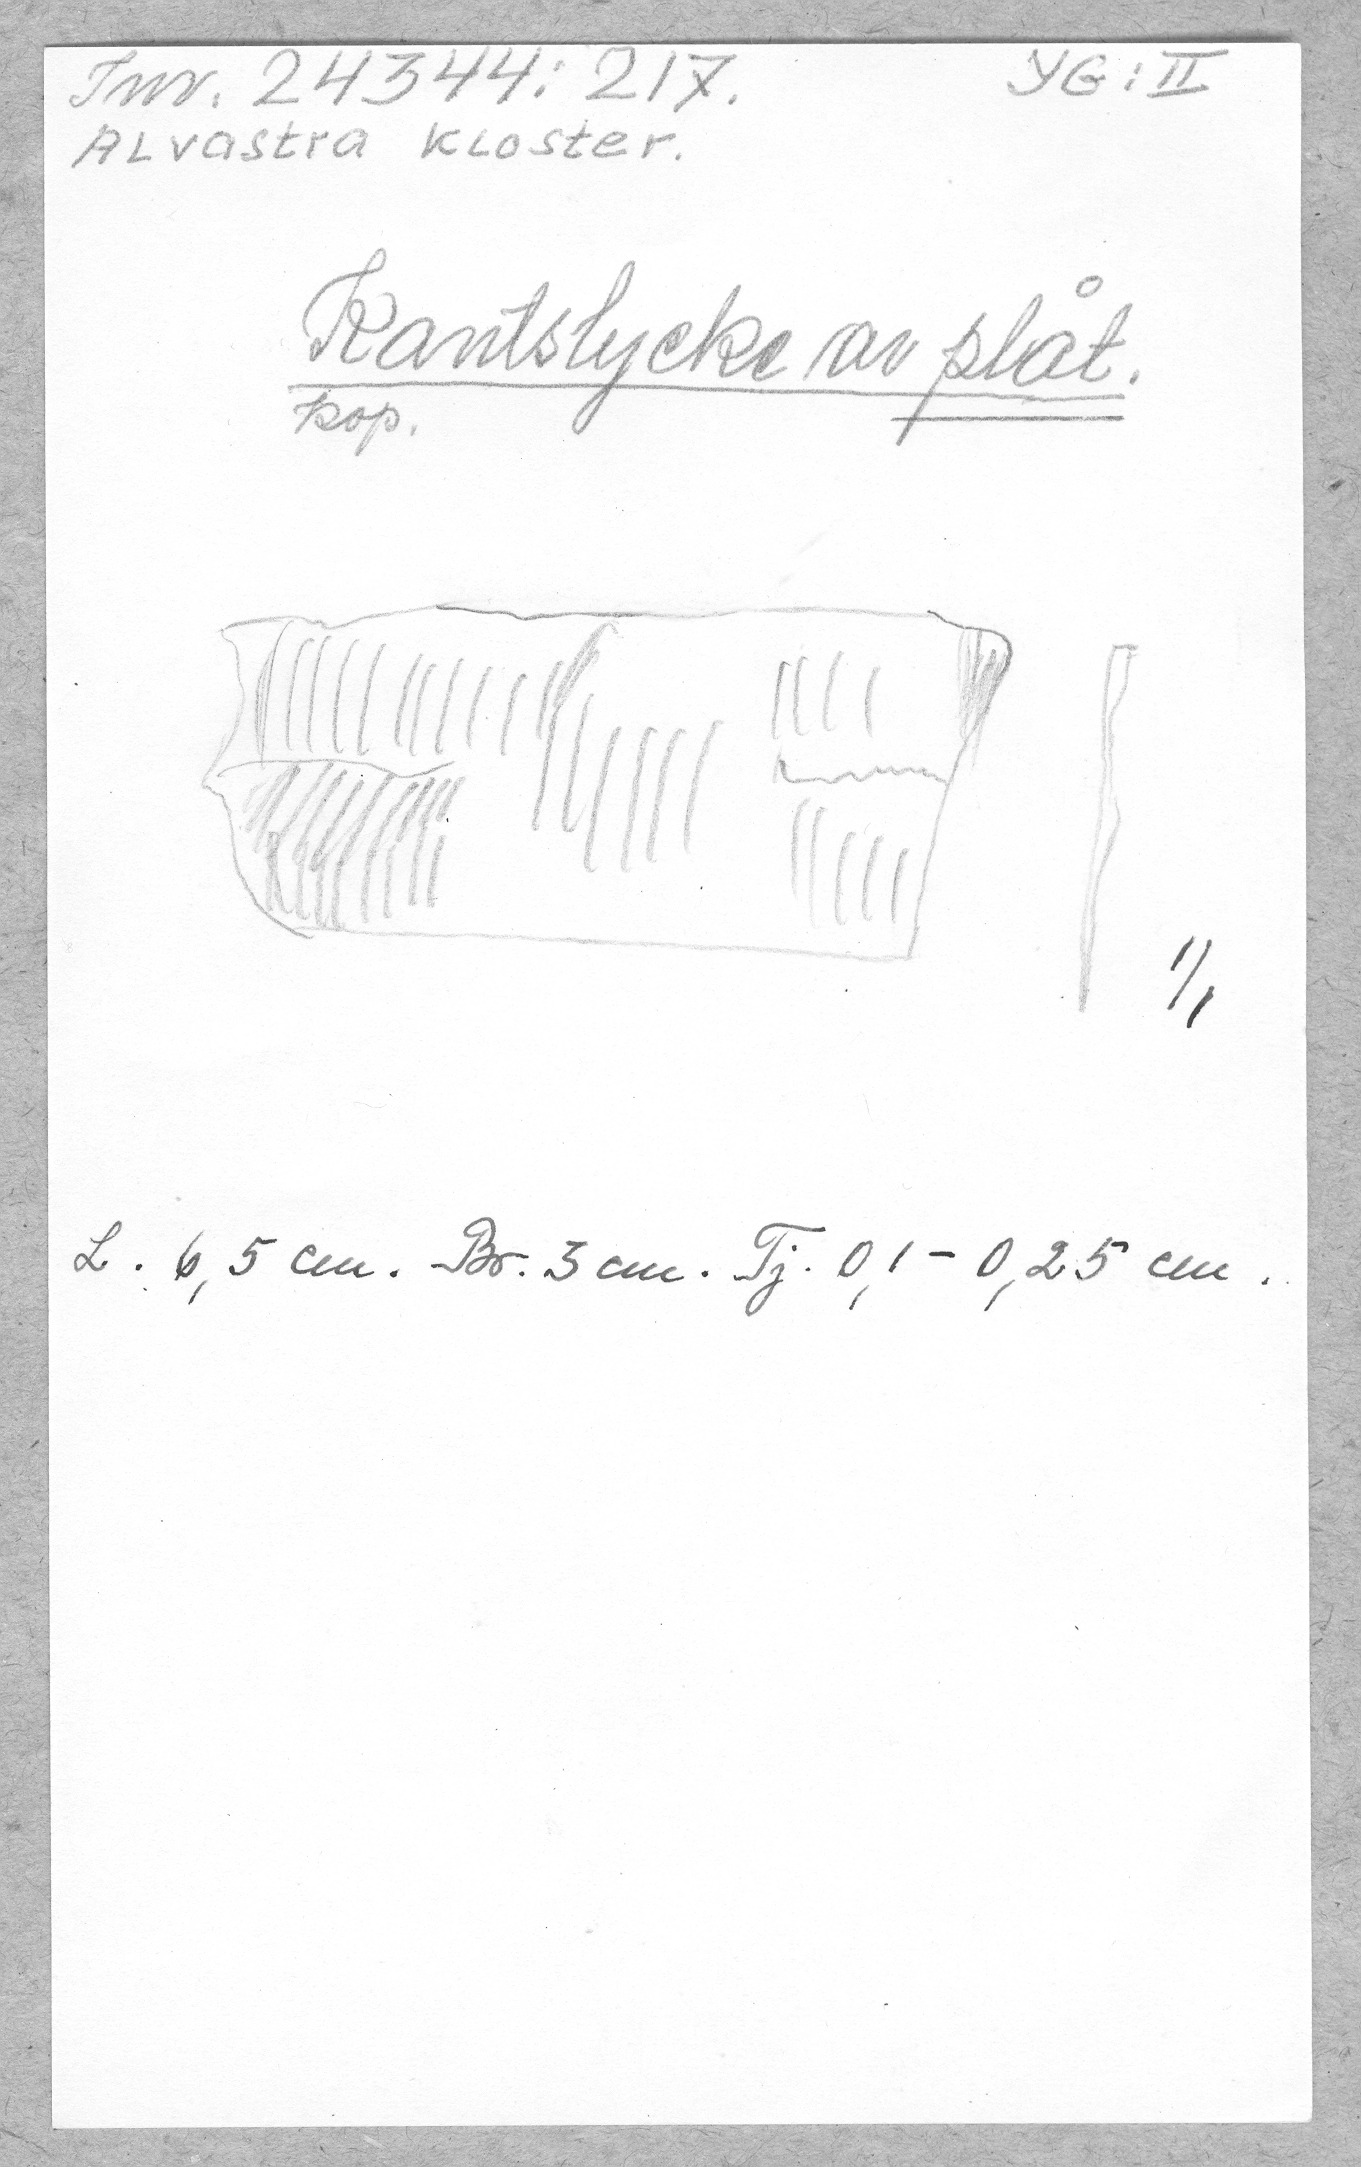 Inv. 24344:217. YG:II
Alvastra kloster.
Kantstycke av plåt.
kop.
1/1
L. 6,5 cm. Br. 3 cm. Tj. 0,1 - 0,25 cm.